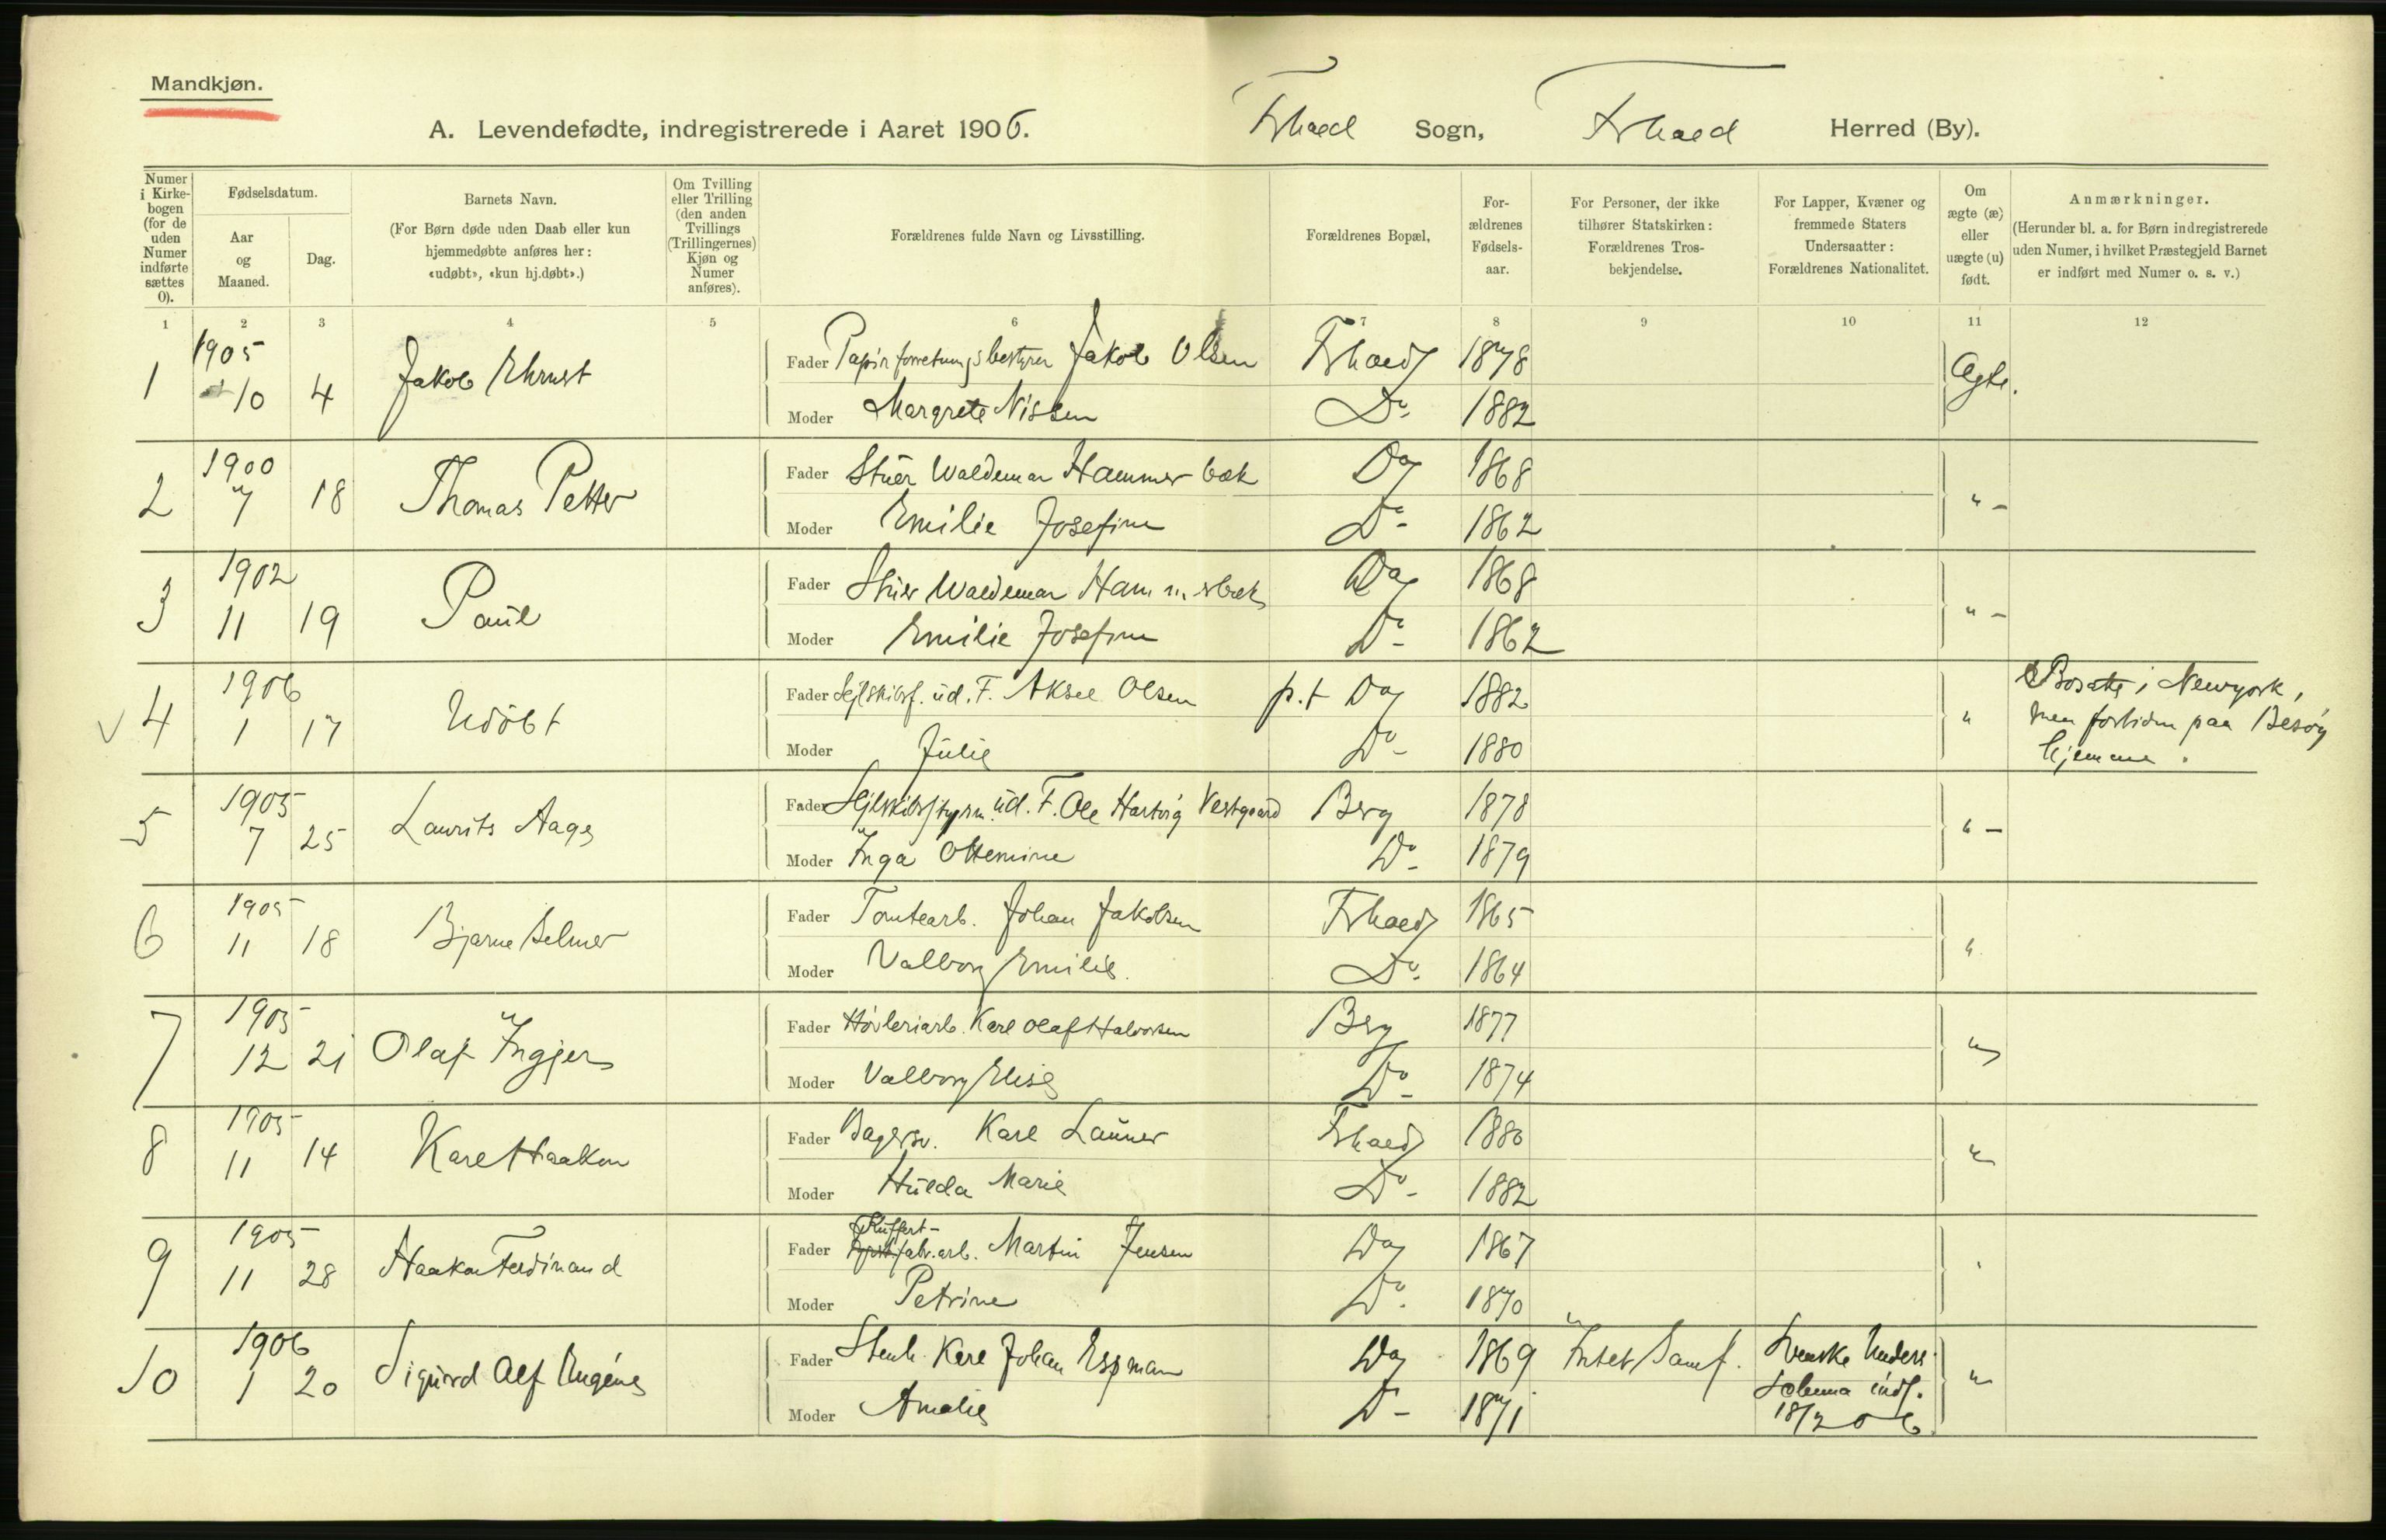 Mandkjøn.
A. Levendefødte, indregistrerede i Aaret 1906. Frhald Sogn, Frhald Herred (By).
Numer i Kirke-bogen (for de uden Numer indførte sættes 0).
Fødselsdatum.
Aar og Maaned.
Dag.
Barnets Navn.
(For Børn døde uden Daab eller kun hjemmedøbte anføres her: «udøbt», «kun hj.døbt».)
Om Tvilling eller Trilling (den anden Tvillings (Trillingernes) Kjøn og Numer anføres).
Forældrenes fulde Navn og Livsstilling.
Forældrenes Bopæl,
For-ældrenes Fødsels-aar.
For Personer, der ikke tilhører Statskirken: Forældrenes Tros-bekjendelse.
For Lapper, Kvæner og fremmede Staters Undersaatter: Forældrenes Nationalitet.
Om ægte (æ) eller uægte (u) født.
Anmærkninger.
(Herunder bl. a. for Børn indregistrerede uden Numer, i hvilket Præstegjeld Barnet er indført med Numer o. s. v.)
1 2 3 4 5 6 7 8 9 10 11 12
1 1905 10 4 Jakob Ehrnst Fader Papirforretningsbestyrer Jakob Olsen Frhald 1878 Ægte.
Moder Margrete Nissen Do - 1882
2 1900 7 18 Thomas Petter Fader Stuer Waldemar Hammerbæk Do 1868 " -
Moder Emilie Josefine Do - 1862
3 1902 11 19 Paul Fader Stuer Waldemar Hammerbæk Do 1868 " -
Moder Emilie Josefine Do - 1862
4 1906 1 17 Udøbt Fader Sejlskibsf. ud. F. Aksel Olsen p.t Do 1882 " Bosatte i Newyork,
men fortiden paa Besøg
hjemme.
Moder Julie Do - 1880
5 1905 7 25 Laurits Aage Fader Sejlskibsstyrm. ud. F. Ole Hartvig Vestgaard Berg 1878 " -
Moder Inga Ottemine Do - 1879
6 1905 11 18 Bjarne Selmer Fader Tomtearb. Johan Jakobsen Frhald 1865 "
Moder Valborg Emilie. Do - 1864
7 1905 12 21 Olaf Ingjer Fader Høvleriarb. Karl Olaf Halvorsen Berg 1877 "
Moder Valborg Elise Do - 1874
8 1905 11 14 Karl Haakon Fader Bagersv. Karl Launer Frhald 1880 "
Moder Hulda Marie Do - 1882
9 1905 11 28 Haakon Ferdinand Fader Kuffert-fabr.arb. Martin Jensen Do 1867 "
Moder Petrine Do - 1870
10 1906 1 20 Sigurd Alf Eugéne Fader Stenh. Karl Johan Espman Do 1869 Intet Samf. Svenske Unders. "
Moder Amalie Do - 1871 Schema indf.
18/2 06